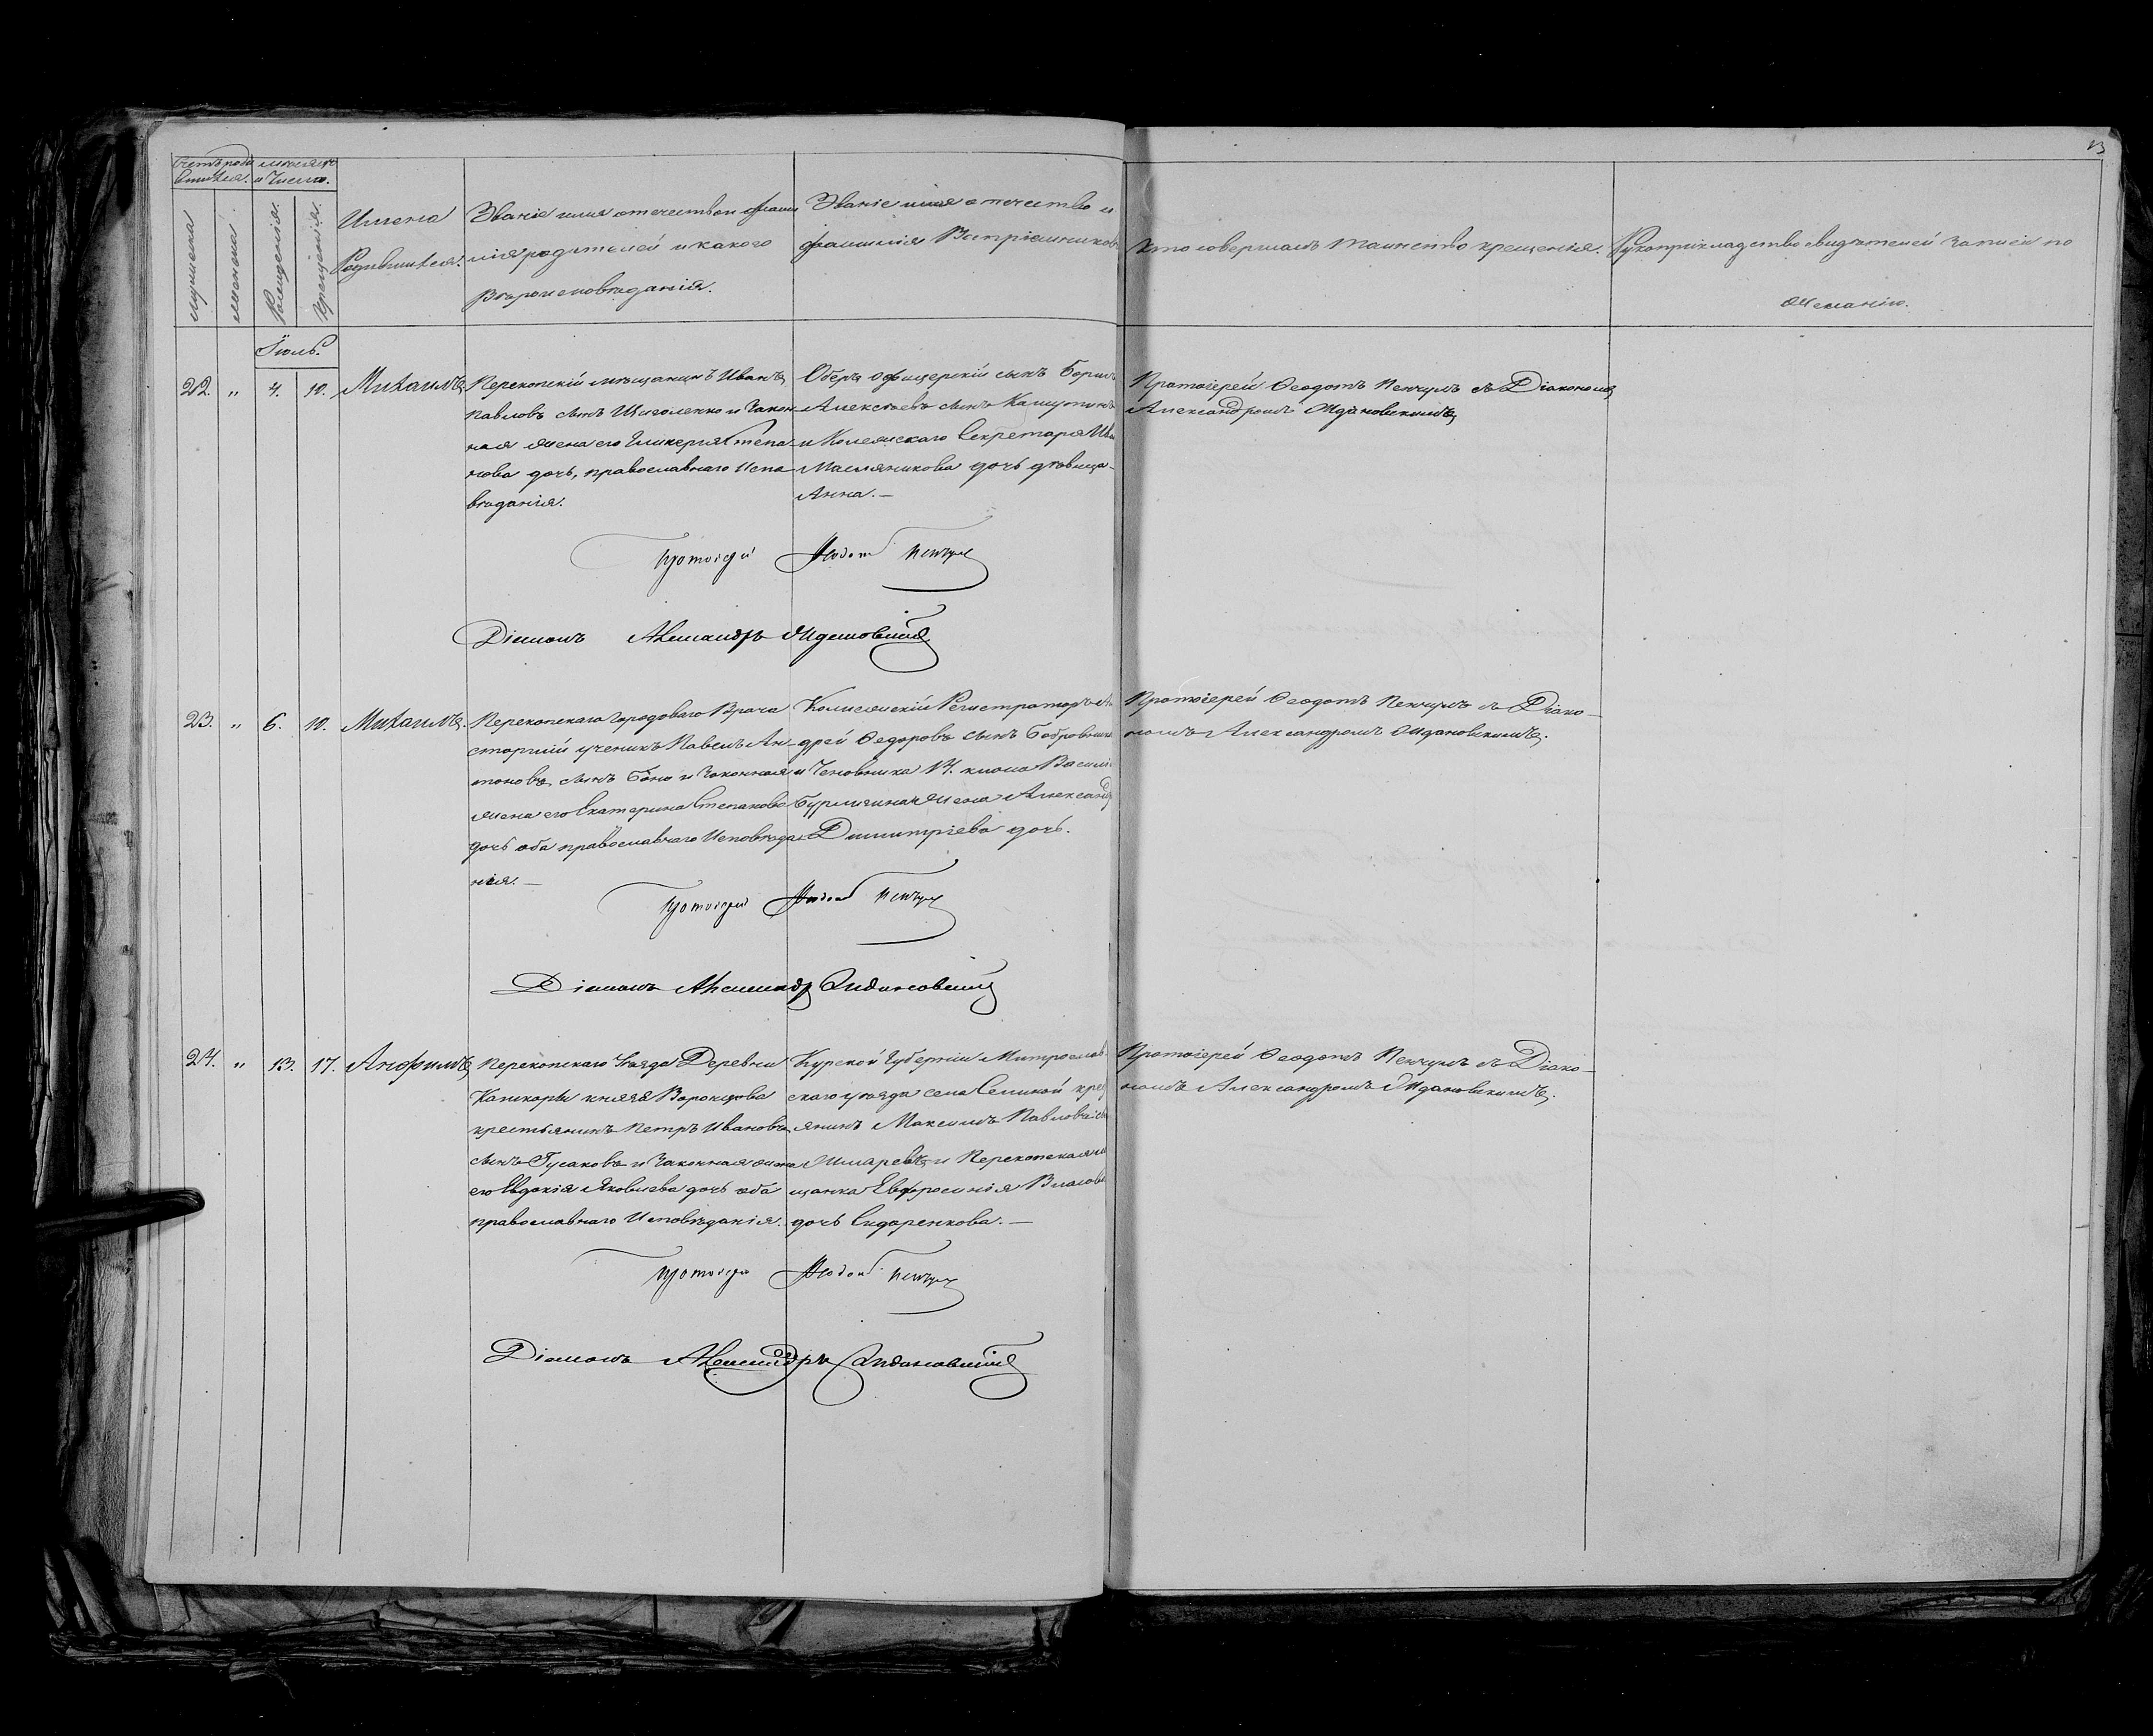 13
Счетъ роди мѣсяцъ
вшихся. и Число.
мужеска
женска.
Рожденія.
Крещенія.
Имена
Родившихся.
Званіе имя отечество и фами
лія родителей и какого
Вѣроисповѣданія.
Званіе имя отчество и
фамилія Воспріемниковъ
Кто совершалъ таинство крещенія.
Рукоприкладство свидѣтелей записи по
желанію.
Іюль.
22. „ 4. 10. Михаилъ
Перекопскій мѣщанинъ Иванъ
Павловъ сынъ и закон
ная жена его Гликерія Степа
нова дочь, православнаго Испо
вѣданія.
Оберъ офицерскій сынъ Борисъ
Алексѣевъ сынъ
и Колежскаго Секретаря Ива
Масляникова дочь дѣвица
Анна. —
Протоіерей Ѳеодотъ Пенчулъ съ Діакономъ
Александромъ Ждановскимъ
Протоіерей Ѳеодотъ Пенчулъ
Діаконъ Александръ Ждановскій
23. „ 6. 10. Михаилъ.
Перекопскаго Городоваго Врача
старшій ученикъ Павелъ Ан
тоновъ сынъ и законная
жена его Екатерина Степанова
дочь оба православнаго Исповѣда
нія. —
Колежскій Регистраторъ Ан
дрей Ѳедоровъ сынъ
и Чиновника 14. класа Василі
жена Александ
Димитріева дочь.
Протоіерей Ѳеодотъ Пенчулъ съ Діако-
номъ Александромъ Ждановскимъ.
Протоіерей Ѳеодотъ Пенчулъ
Діаконъ Александръ Ждановскій
24. „ 13. 17. Анфимъ
Перекопскаго Уѣзда Деревни
князя Воронцова
крестьянинъ Петръ Ивановъ
сынъ Гусаковъ и законная жена
его Евдокія Яковлева дочь оба
православнаго Исповѣданія.
Курской Губерніи
скаго уѣзда села крес
янинъ Максимъ Павловъ сы
и Перекопская мѣ
щанка Евфросинія Власова
дочь Сидоренкова. —
Протоіерей Ѳеодотъ Пенчулъ съ Діако-
номъ Александромъ Ждановскимъ.
Протоіерей Ѳеодотъ Пенчулъ
Діаконъ Александръ Ждановскій